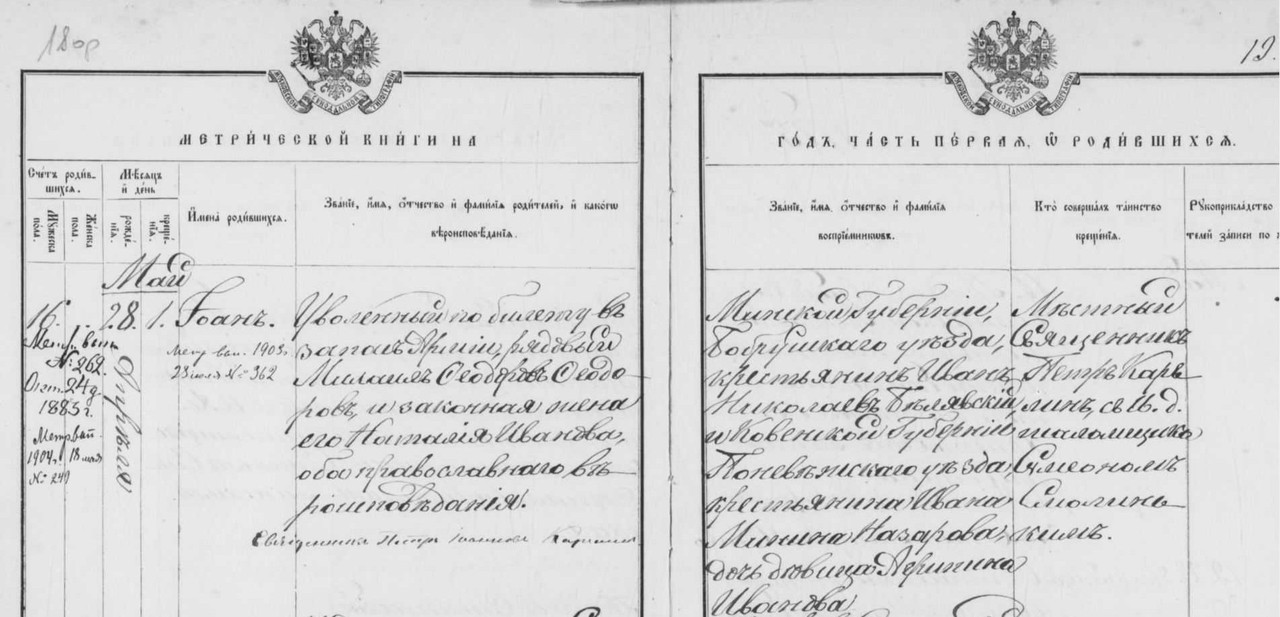 18 ор
13.
МЕТРИ́ЧЕСКОЙ КНИ́ГИ НА
ГО́ДЪ, ЧА́СТЬ ПЕ́РВАЯ, Ѿ РОДИ́ВШИХСЯ.
Сче́тъ роди́в-
шихся.
Мꙋжеска
пола.
Же́нска
пола.
Мѣсяцъ
и҆ де́нь
рожде́-
нїя.
креще́-
нїя.
И҆мена̀ роди́вшихся.
Зва́нїе, и҆́мя, ѻ҆́тчество и҆ фами́лїя роди́телей, и҆ како́гѡ
вѣроисповѣ́данїя.
Зва́нїе, и҆́мя, ѻ҆́тчество и҆ фами́лїя
воспрїе́мниковъ.
Кто̀ соверша́лъ та́инство
креще́нїя.
Рꙋкоприкла́дство
телей за́писи по
Май
16.
28.
Апрѣля
1.
Іоанъ.
Метр. вып. 1903г.
23 іюля № 362
Метр. вып.
№ 262.
Окт. 24 д
1883 г.
Метр. вып.
1904 г. 18 мая
№ 240
Уволенный по билету въ
запасъ Арміи, рядовый
Михаилъ Ѳеодоровъ Ѳеодо-
ровъ и законная жена
его Наталія Иванова,
оба православнаго вѣ-
роисповѣданія.
Священникъ Петръ
Минской Губерніи,
Бобруйскаго уѣзда,
крестьянинъ Иванъ
Николаевъ Бѣлявскій
и Ковенской Губерніи
Поневѣжскаго уѣзда
крестьянина Ивана
Минина Назарова,
дочь дѣвица
Иванова
Мѣстный
Священникъ
Петръ Каре
линъ, съ и. д.
псаломщика
Сѵмеономъ
Смолинь
кимъ.